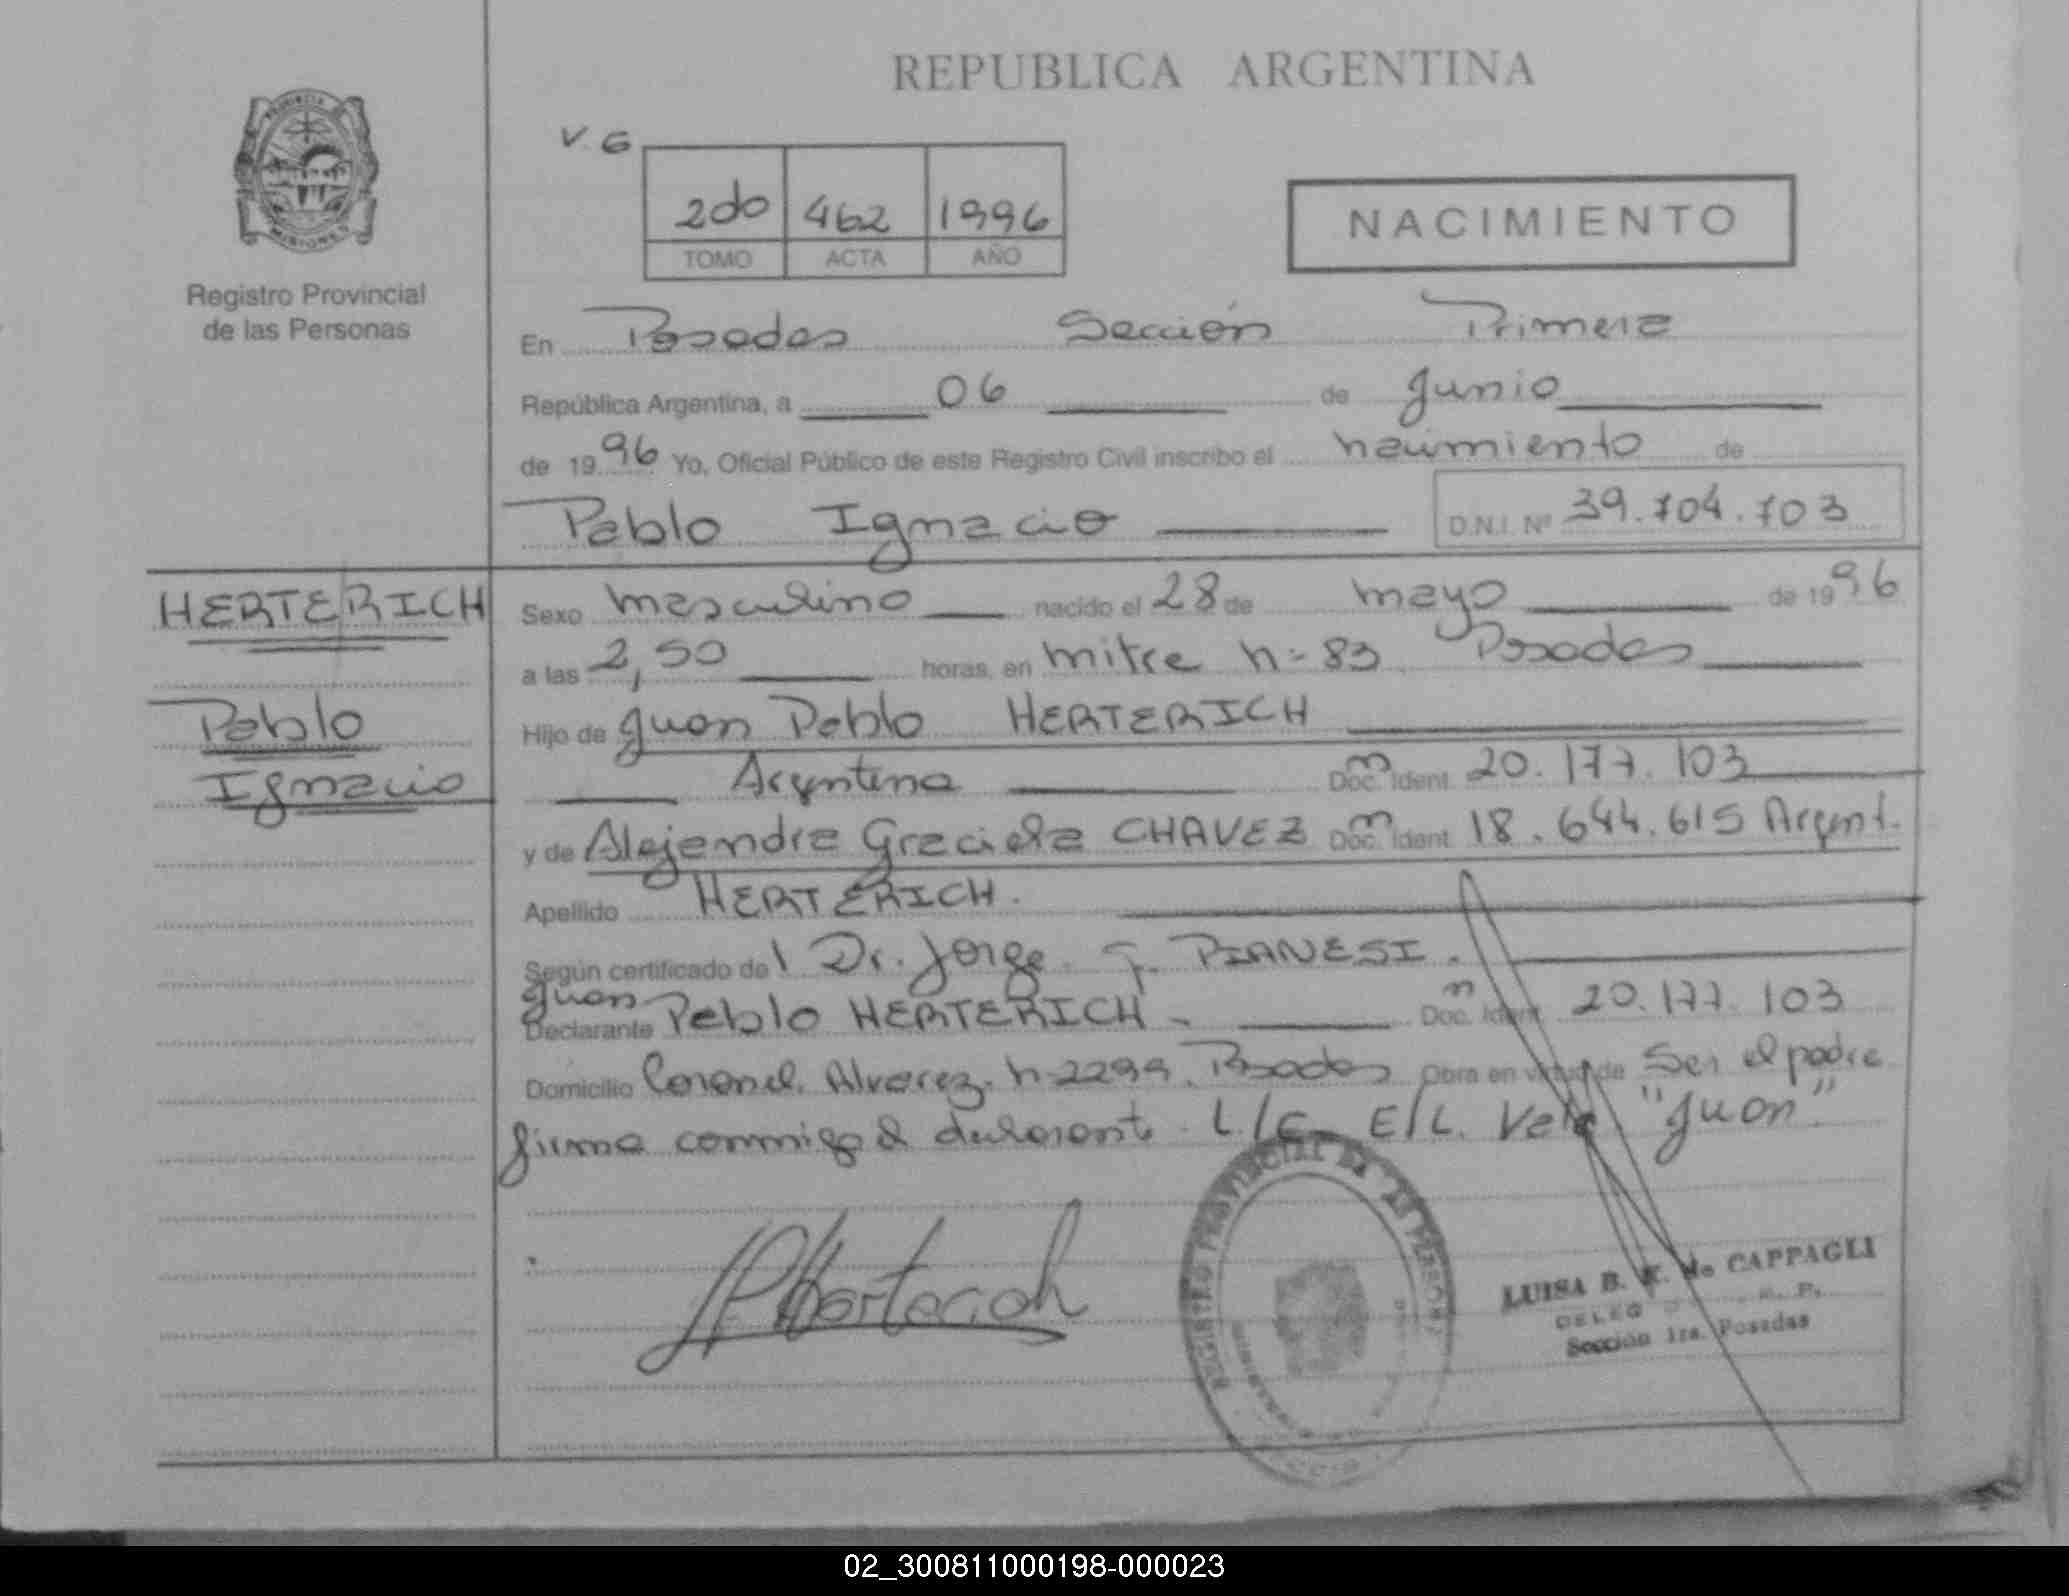 REPUBLICA ARGENTINA
PROVINCIA
MISIONES
Registro Provincial
de las Personas
V. G
2do 462 1996
TOMO ACTA AÑO
NACIMIENTO
En Posadas Sección Primera
República Argentina, a 06 de Junio
de 1996 Yo, Oficial Público de este Registro Civil inscribo el nacimiento de
Pablo Ignacio D.N.I. Nº 39.704.703
HERTERICH
Pablo
Ignacio
Sexo masculino nacido el 28 de mayo de 1996
a las 2,50 horas, en mitre n= 83 Posadas
Hijo de Juan Pablo HERTERICH
Argentina Doc. m Ident. 20.177.103
y de Alejandra Graciela CHAVEZ Doc. m Ident. 18.644.615 Argent.
Apellido HERTERICH.
Según certificado de l Dr. Jorge J. PIANESI.
Juan
Declarante Pablo HERTERICH - Doc. m Ident. 20.177.103
Domicilio Coronel. Alvarez. n-2299. Posadas Obra en virtud de Ser el padre
firma conmigo el declarante. L/C. E/L. Vale "Juan"
REGISTRO PROVINCIAL DE LAS PERSONAS
LUISA B. de CAPPAGLI
Sección 1ra. Posadas
02_300811000198-000023